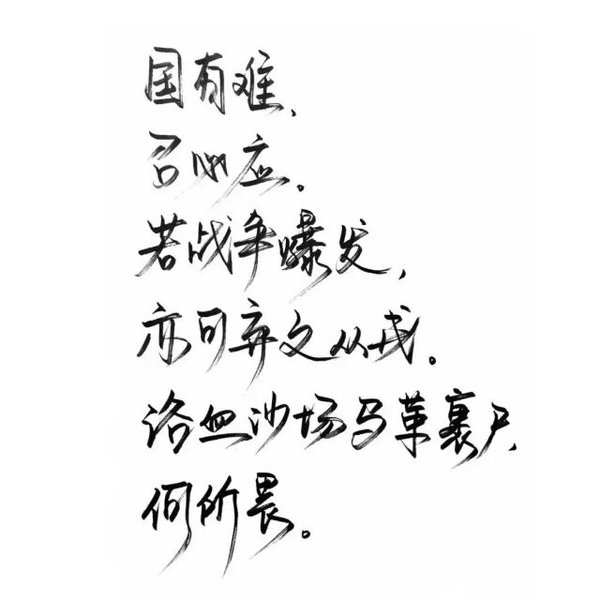 国有难，
召必应。
若战争爆发，
亦可弃文从戎。
洛血沙场马革裹尸，
何所畏。